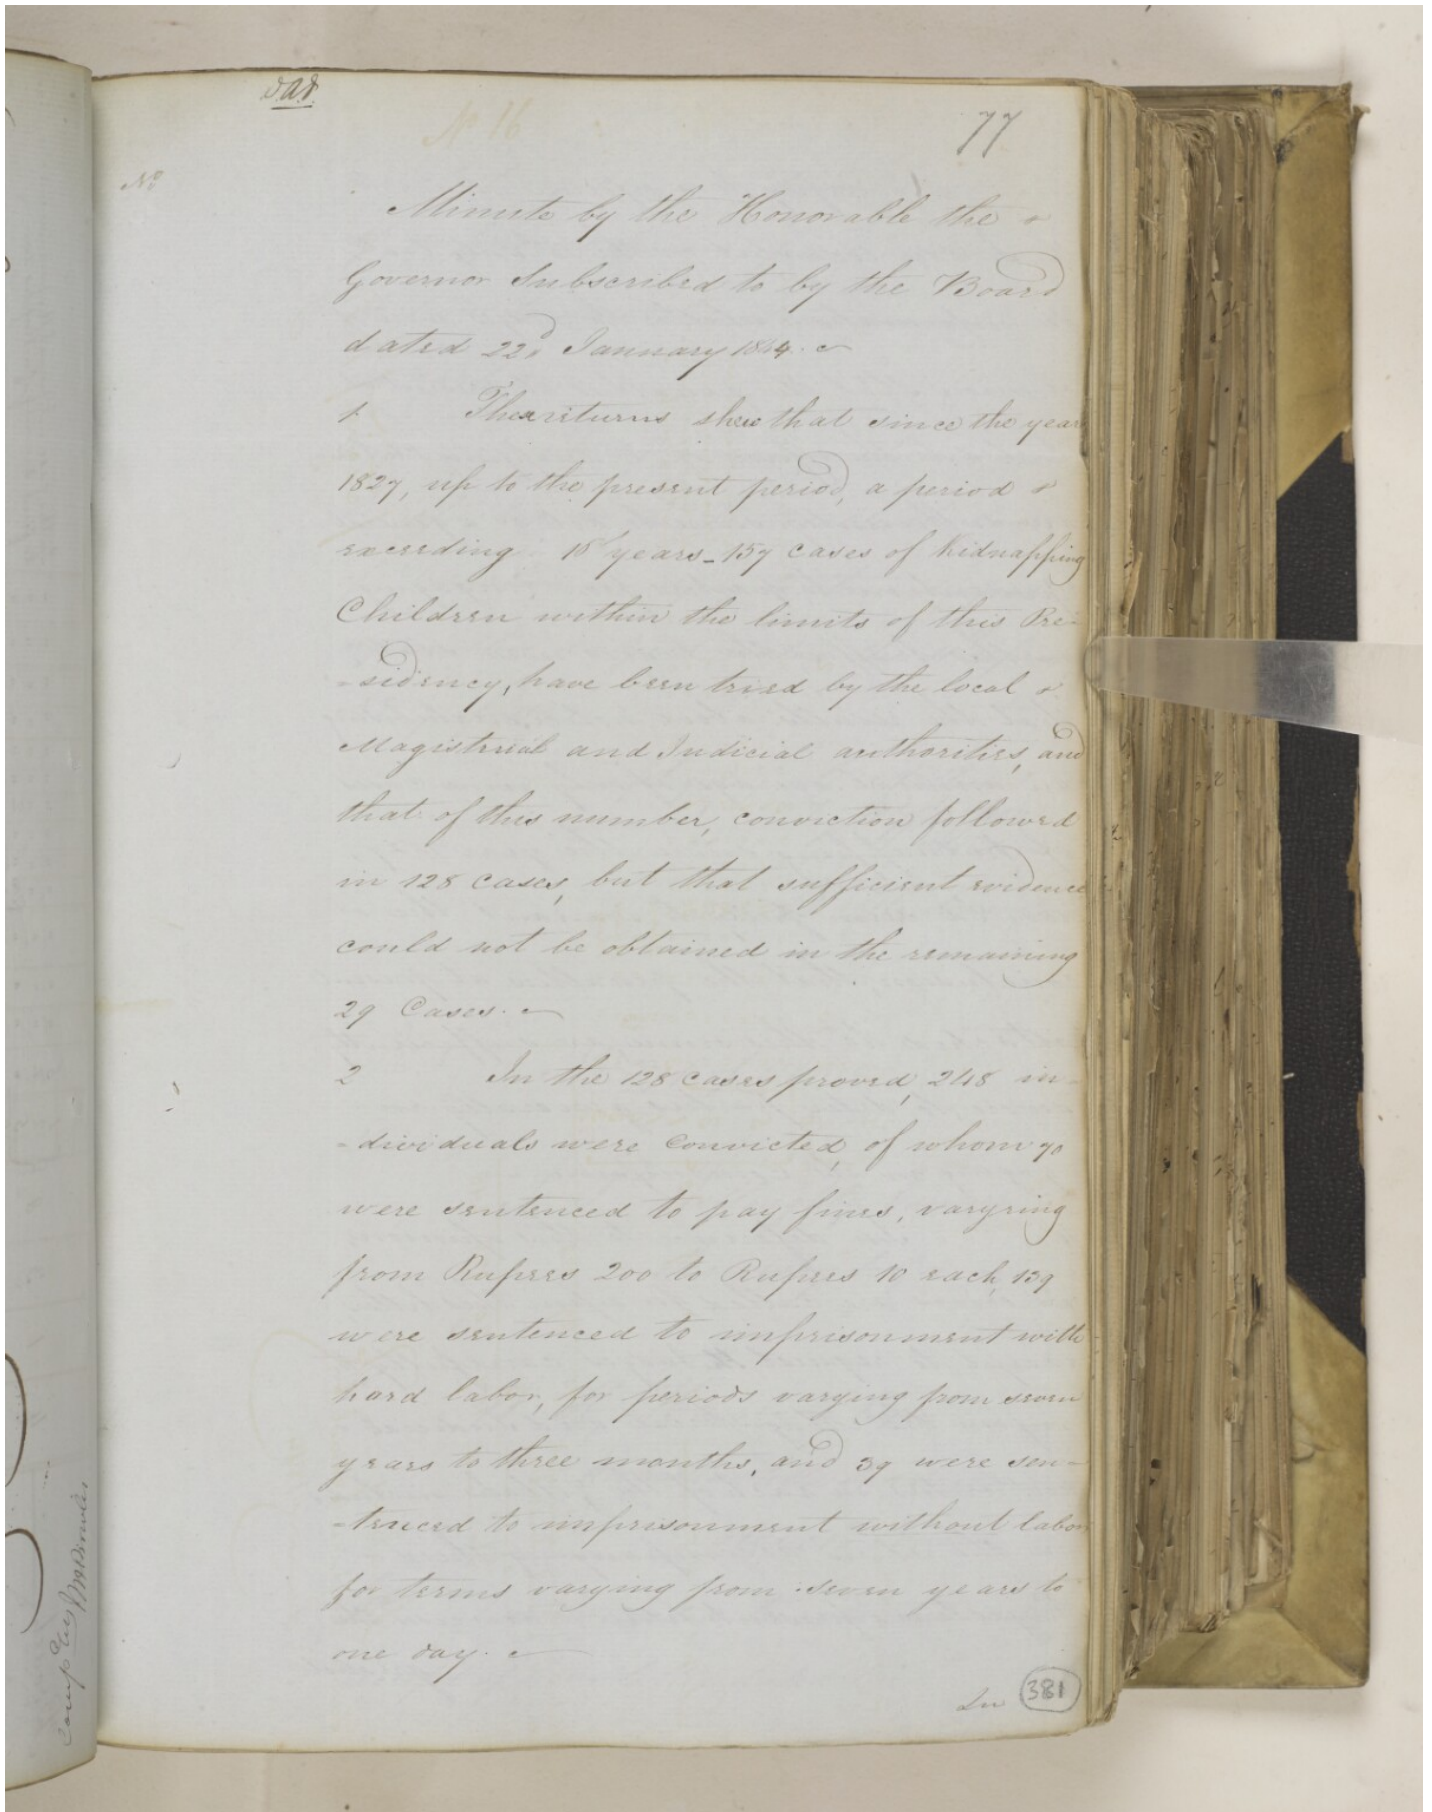 No 16
77
No
Minute by the Honorable the
Governor Subscribed to by the Board
dated 22d January 1844.
1 These returns shew that since the year
1827, up to the present period, a period
exceeding 15 years_157 cases of Kidnapping
Children within the limits of this Pre-
-sidency, have been tried by the local
Magisterial and Judicial authorities, and
that of this number, conviction followed
in 128 cases, but that sufficient evidence
could not be obtained in the remaining
29 Cases.
2 In the 128 cases proved, 248 in-
-dividuals were convicted, of whom 70
were sentenced to pay fines, varying
from Rupees 200 to Rupees 10 each, 139
were sentenced to imprisonment with
hard labor, for periods varying from seven
years to three months, and 39 were sen-
-tenced to imprisonment without labor
for terms varying from seven years to
one day.
In
381